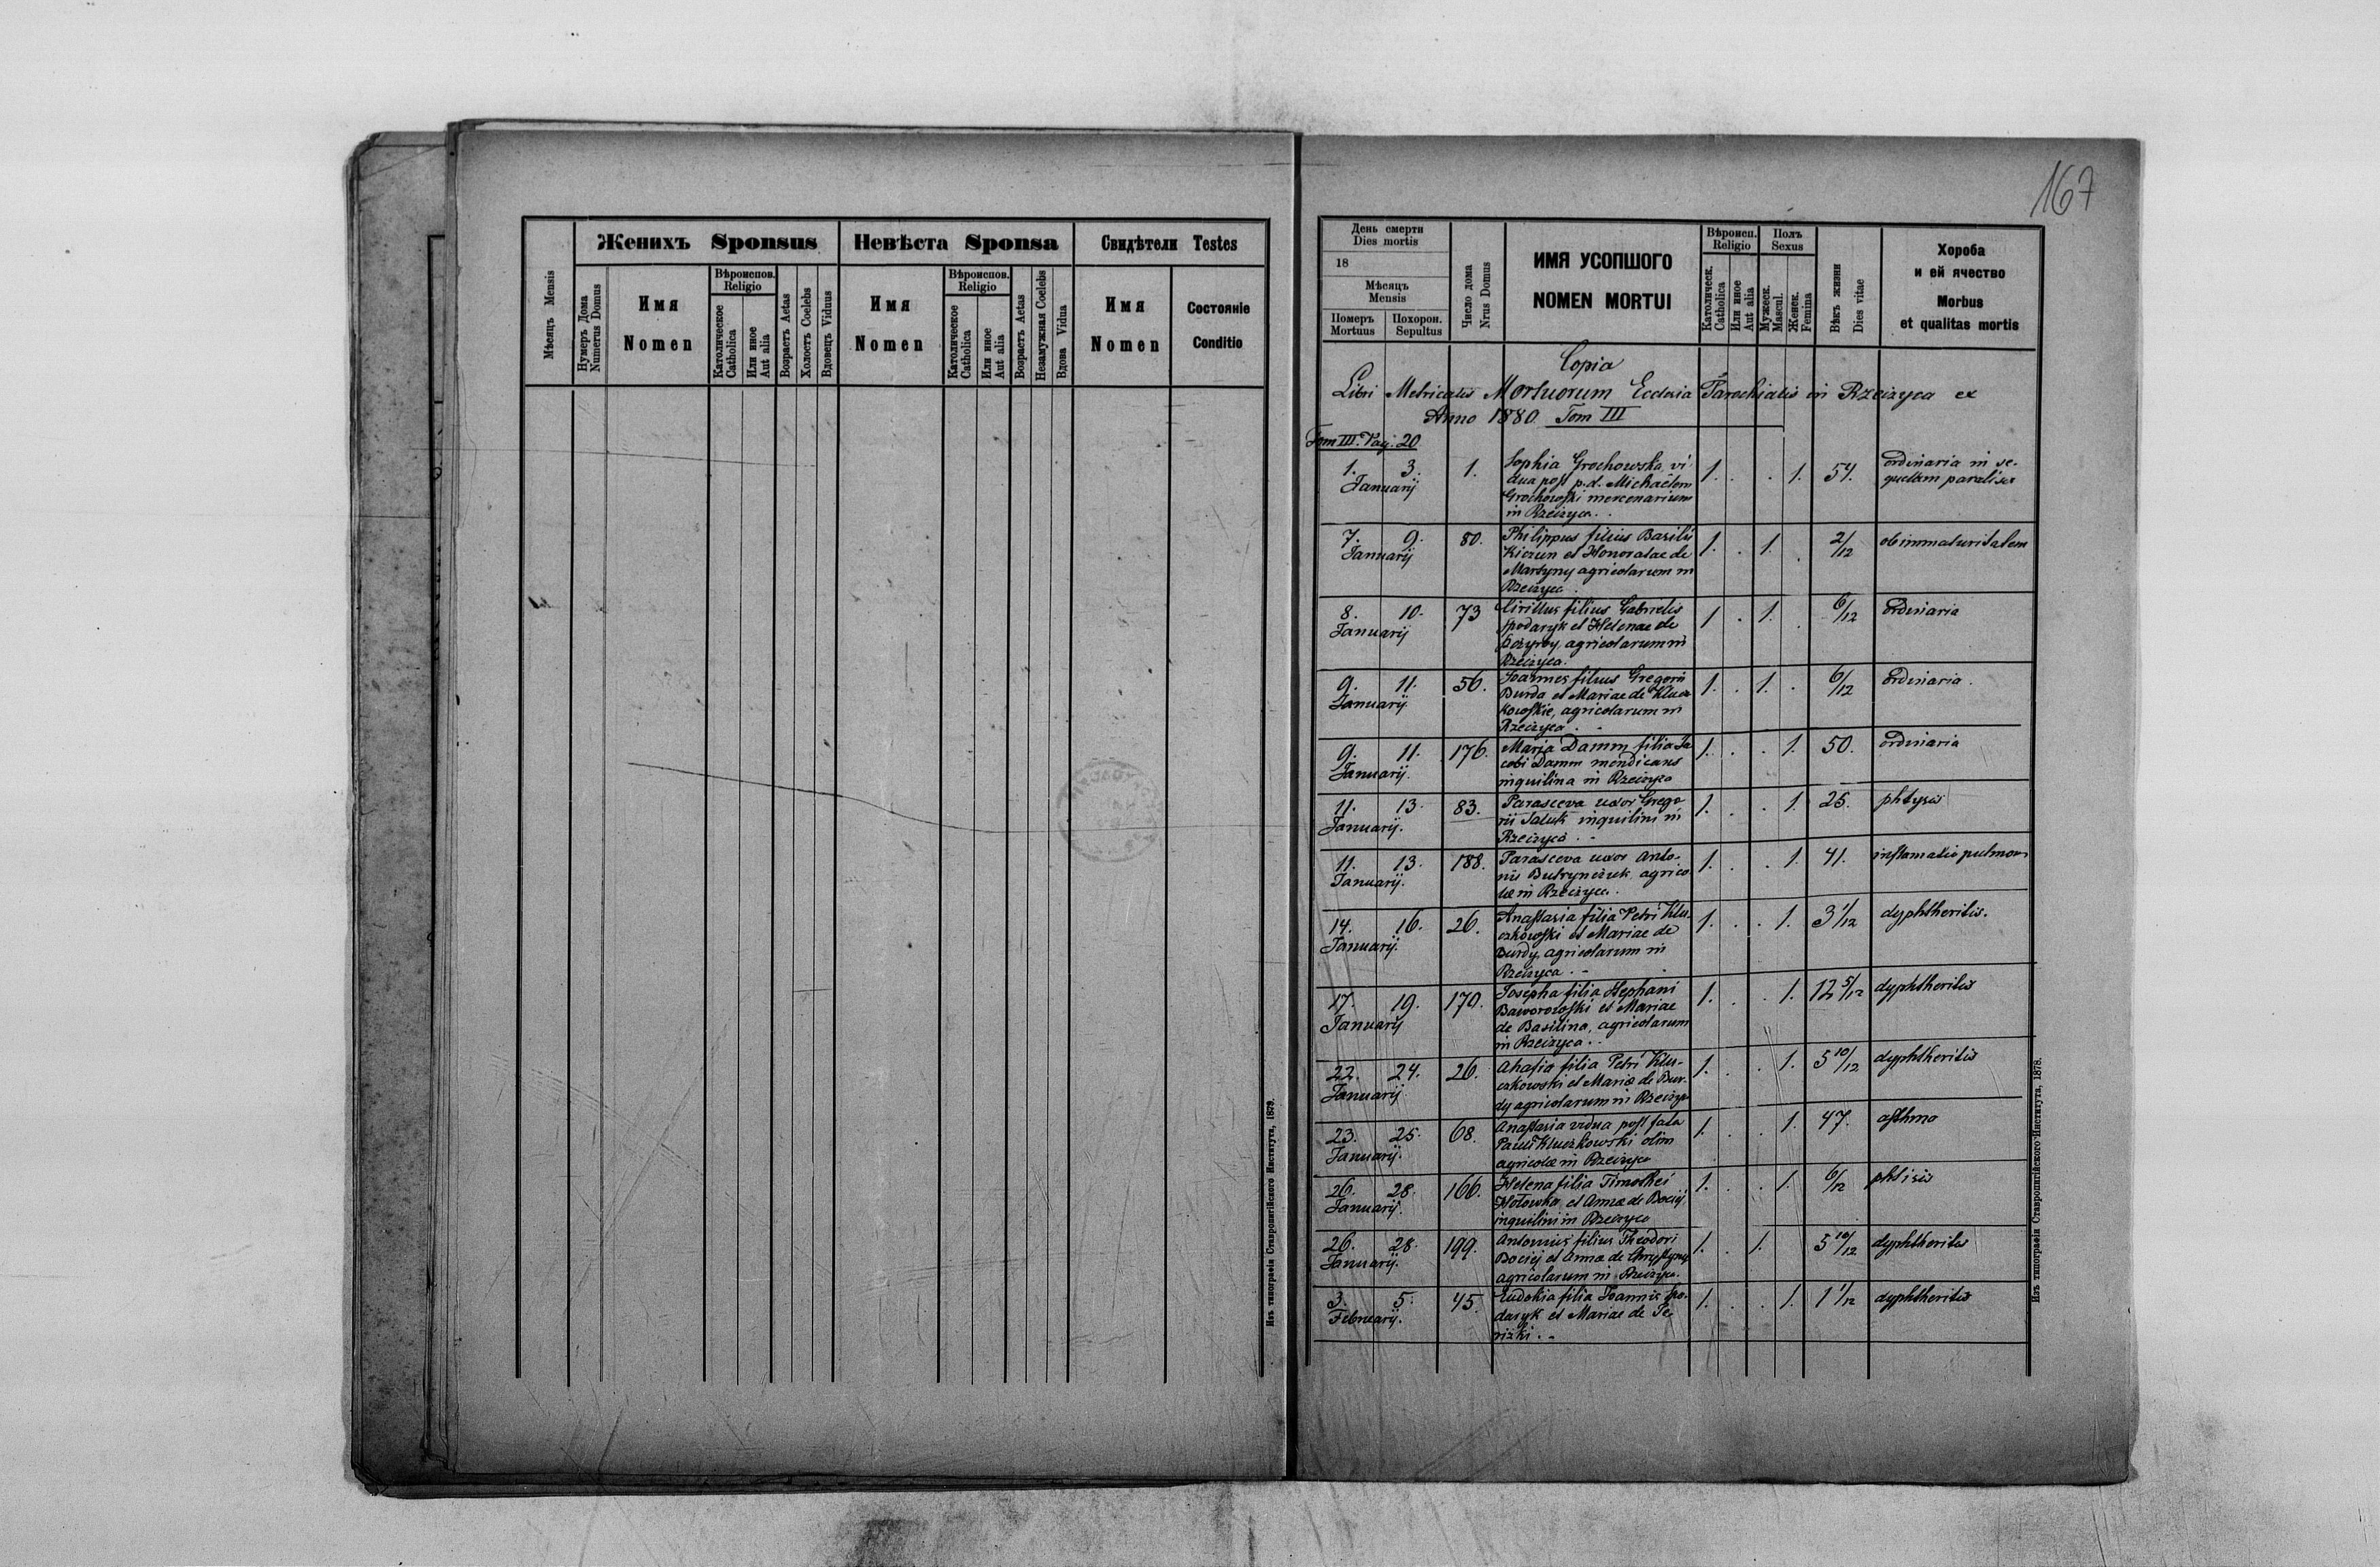 167
Женихъ Sponsus
Невѣста Sponsa
Свидѣтели Testes
Мѣсяцъ Mensis
Нумеръ Дома
Numerus Domus
Имя
Nomen
Вѣроиспов.
Religio
Католическое
Catholica
Или иное
Aut alia
Возрастъ Aetas
Холостъ Coelebs
Вдовецъ Viduus
Имя
Nomen
Вѣроиспов.
Religio
Католическое
Catholica
Или иное
Aut alia
Возрастъ Aetas
Незамужная Coelebs
Вдова Vidua
Имя
Nomen
Состояніе
Conditio
Изъ типографіи Ставропигійского Института, 1879.
День смерти
Dies mortis
18
Мѣсяцъ
Mensis
Померъ
Mortuus
Похорон.
Sepultus
Число дома
Nrus Domus
ИМЯ УСОПШОГО
NOMEN MORTUI
Вѣроисп.
Religio
Католическ.
Catholica
Или иное
Aut alia
Полъ
Sexus
Мужеск.
Mascul.
Женск.
Femina
Вѣкъ жизни
Dies vitae
Хороба
и ей ячество
Morbus
et qualitas mortis
Copia
Libri Metricalis Mortuorum Parochialis in Rzeczyca ex
Anno 1880 Tom III
Tom III. Pag. 20
1. 3. 1. Sophia Grochowska, vi- 1. . . 1. 54. ordinaria in se-
Januarij dua post p.d. Michaëlem quelam
Grochowski mercenarium
in Rzeczyca.
7. 9. 80. Philippus filius Basilii 1. . 1. . 2/12 ob immaturitatem
Januarij et Honoratae de
Martyny agricolarum in
Rzeczyca.
8. 10. 73 Cirillus filius Gabrielis 1 . 1. . 6/12 ordinaria
Januarij Spodaryk et Helenae de
agricolarum in
Rzeczyca.
9. 11. 56. Joannes filius Gregorii 1. . 1. . 6/12 ordinaria.
Januarij Burda et Mariae de Klucz
kowskie, agricolarum in
Rzeczyca.
9. 11. 176. Maria Damm filia Ja 1. . . 1. 50. ordinaria
Januarij. cobi Damm mendicans
inquilina in Rzeczyca
11. 13. 83. Parasceva uxor Grego 1. . . 1. 25. phtysis
Januarij. rii inquilini in
Rzeczyca.
11. 13. 188. Parasceva uxor Anto- 1. . . 1. 41. inflamatio pulmon
Januarij. nii Butrynczuk agrico
lae in Rzeczyca.
14. 16. 26. Anastasia filia Petri Klu- 1. . . 1. 3 1/12 dyphtheritis.
Januarij. czkowski et Mariae de
Burdy, agricolarum in
Rzeczyca.
17. 19. 170. Josepha filia Stephani 1. . . 1. 12 5/12 dyphtheritis
Januarij Baworowski et Mariae
de Basilina, agricolarum
in Rzeczyca.
22. 24. 26. Ahafia filia Petri Klu- 1. . . 1. 5 10/12 dyphtheritis
Januarij. czkowski et Mariae de Bur-
dy agricolarum in Rzeczyca
23. 25. 68. Anastasia vidua post fata 1. . . 1. 47. asthma
Januarij. Pauli Kluczkowski olim
agricolae in Rzeczyca
26. 28. 166. Helena filia Timothei 1. . . 1. 6/12 phtisis
Januarij. et Annae de Bociy
inquilini in Rzeczyca
26. 28. 199. Antonius filius Theodori 1. . 1. 5 10/12 dyphtheritis
Januarij. Bociy et Annae de
agricolarum in Rzeczyca.
3. 5. 45. Eudokia filia Joannis Spo- 1. . . 1. 1 1/12 dyphtheritis
Februarij. daryk et Mariae de
Изъ типографіи Ставропигійского Института, 1878.